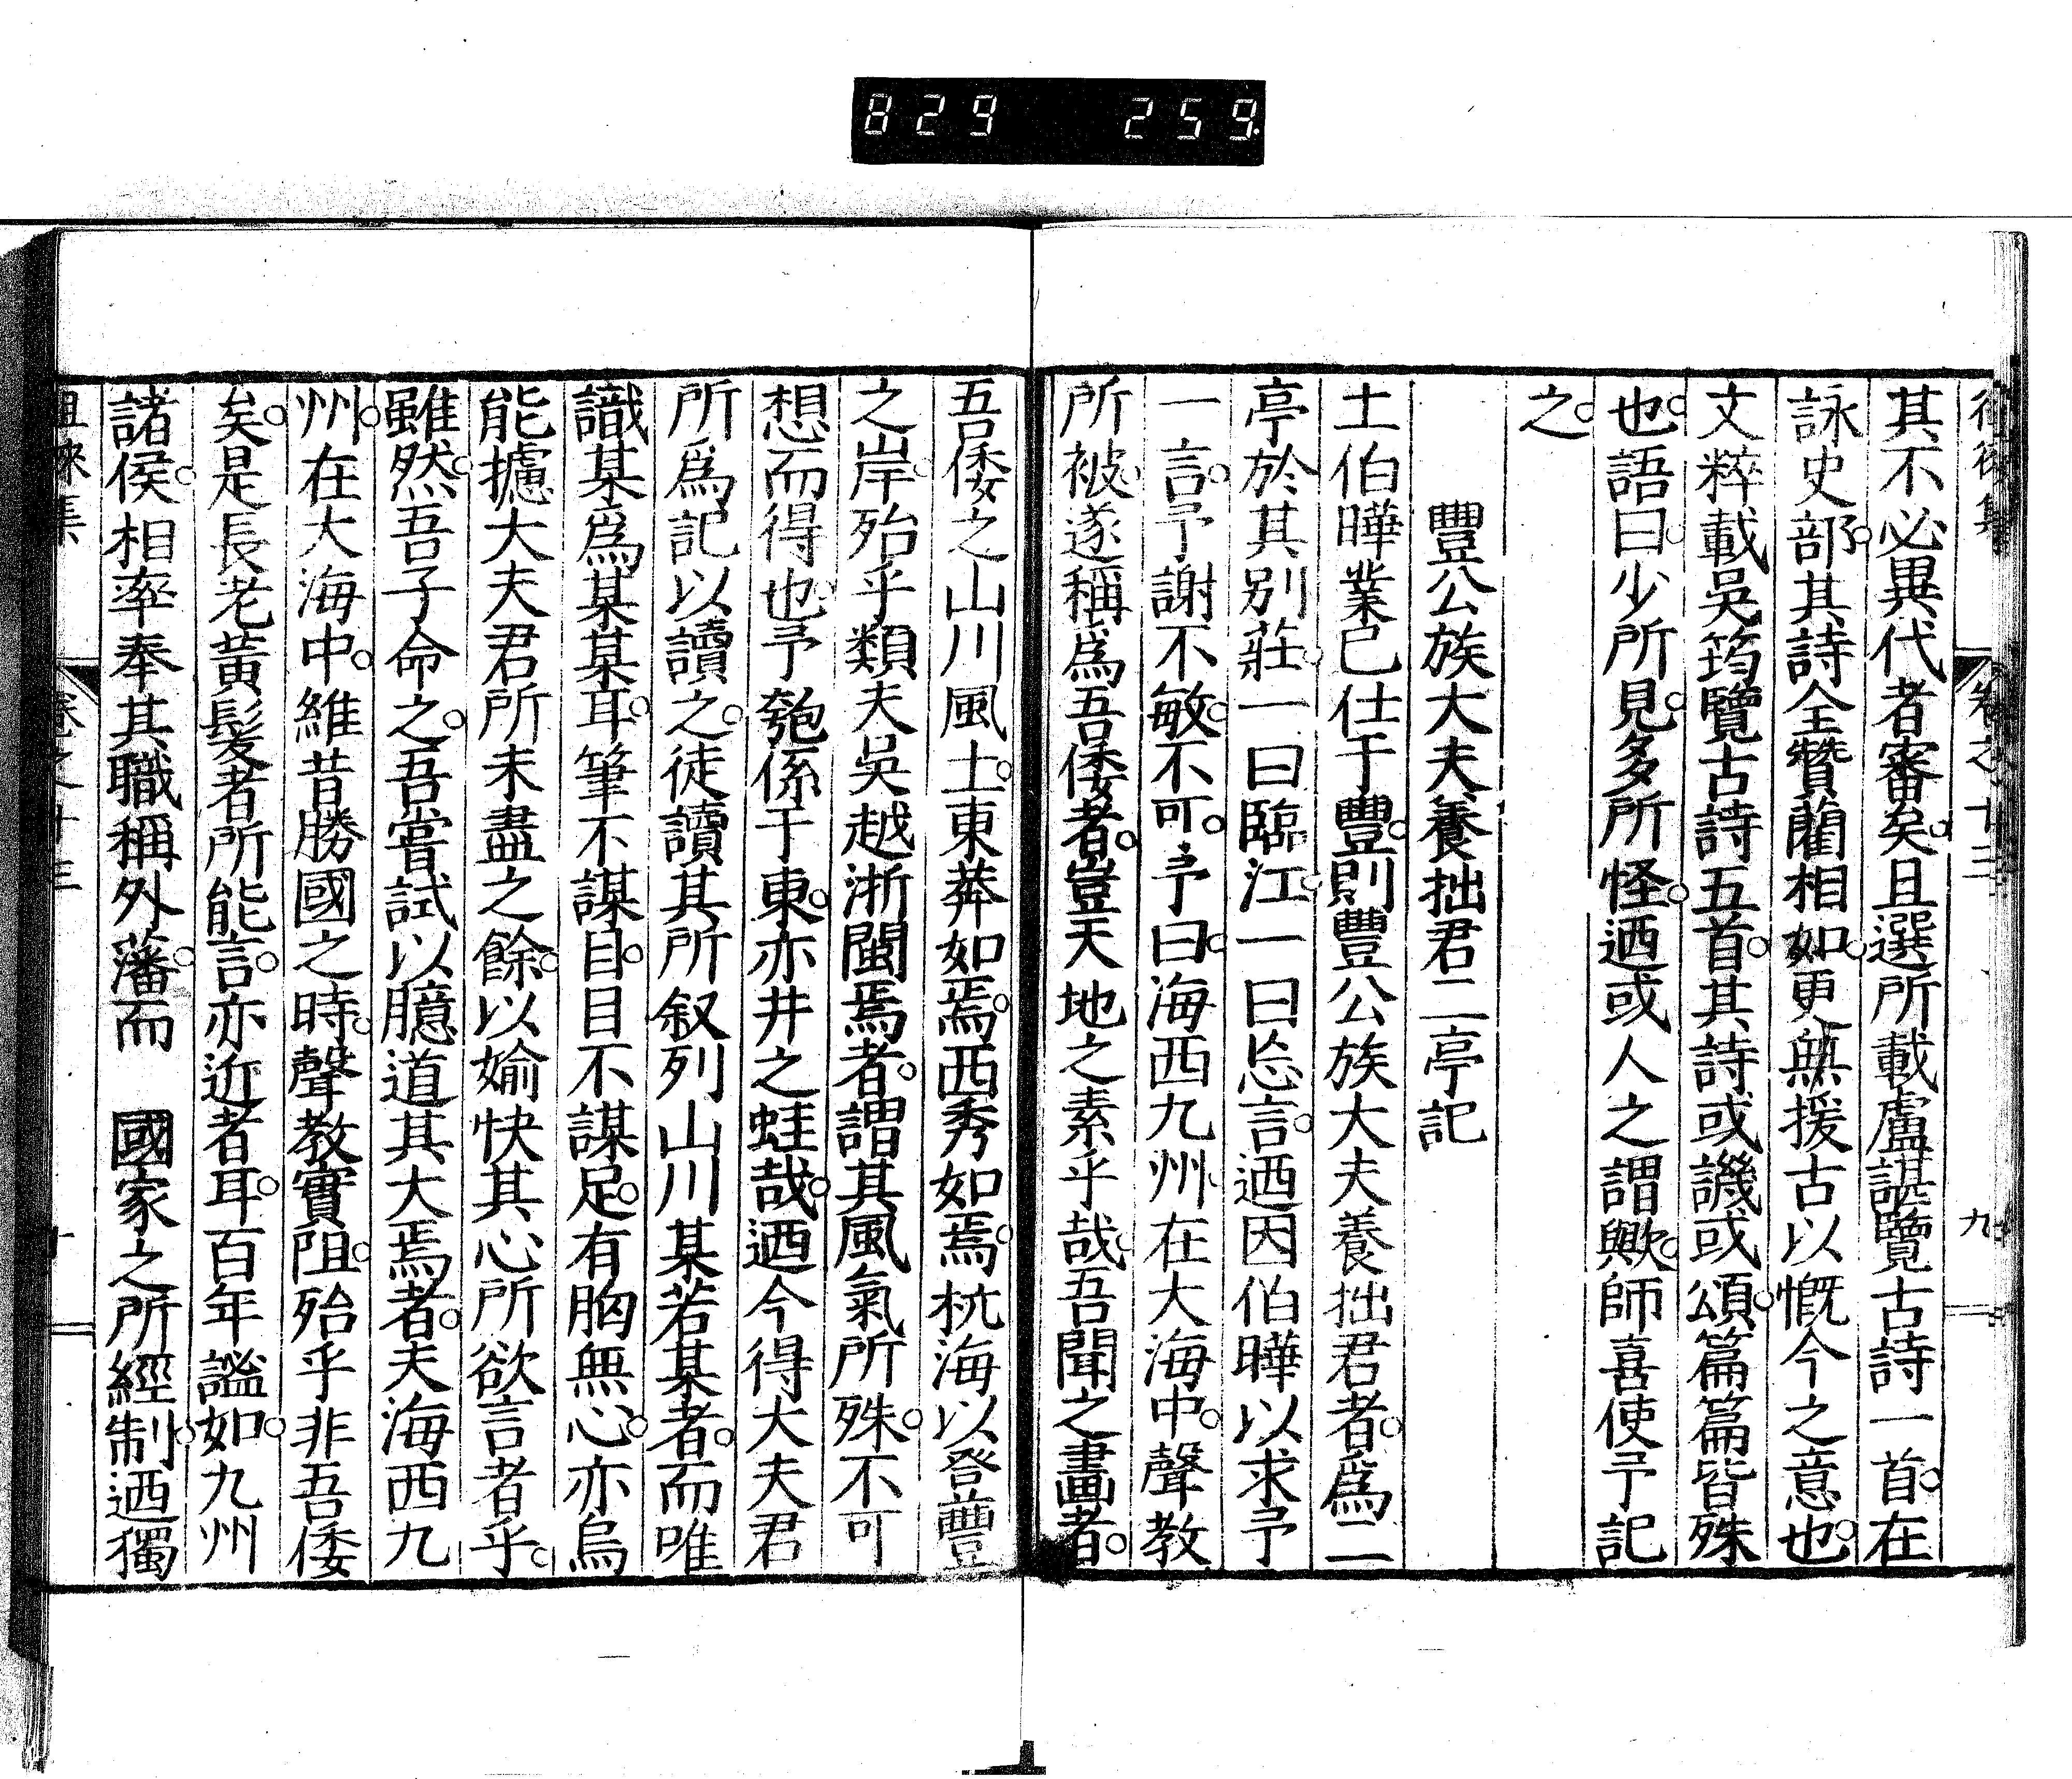 829 259
卷之十三 九
其不必異代者審矣且選所載盧諶覽古詩一首在
詠史部其詩全贊藺相如更無援古以慨今之意也
文粹載吳筠覽古詩五首其詩或譏或頌篇篇皆殊
也語曰少所見多所怪迺或人之謂歟師喜使予記
之
豐公族大夫養拙君二亭記
土伯曄業已仕于豐則豐公族大夫養拙君者爲二
亭於其別莊一曰臨江一曰忘言迺因伯曄以求予
一言予謝不敏不可予曰海西九州在大海中聲教
所被遂稱爲吾倭者豈天地之素乎哉吾聞之畫者
吾倭之山川風土東莽如焉西秀如焉杭海以登豐
之岸殆乎類夫吳越浙閩焉者謂其風氣所殊不可
想而得也予匏係于東亦井之蛙哉迺今得大夫君
所爲記以讀之徒讀其所叙列山川某若某者而唯
識某爲某某耳筆不謀目目不謀足有胸無心亦烏
能攄大夫君所未盡之餘以婾快其心所欲言者乎
雖然吾子命之吾嘗試以臆道其大焉者夫海西九
州在大海中維昔勝國之時聲教實阻殆乎非吾倭
矣是長老黃髮者所能言亦近者耳百年謐如九州
諸侯相率奉其職稱外藩而 國家之所經制迺獨
徂徠集 卷之十三